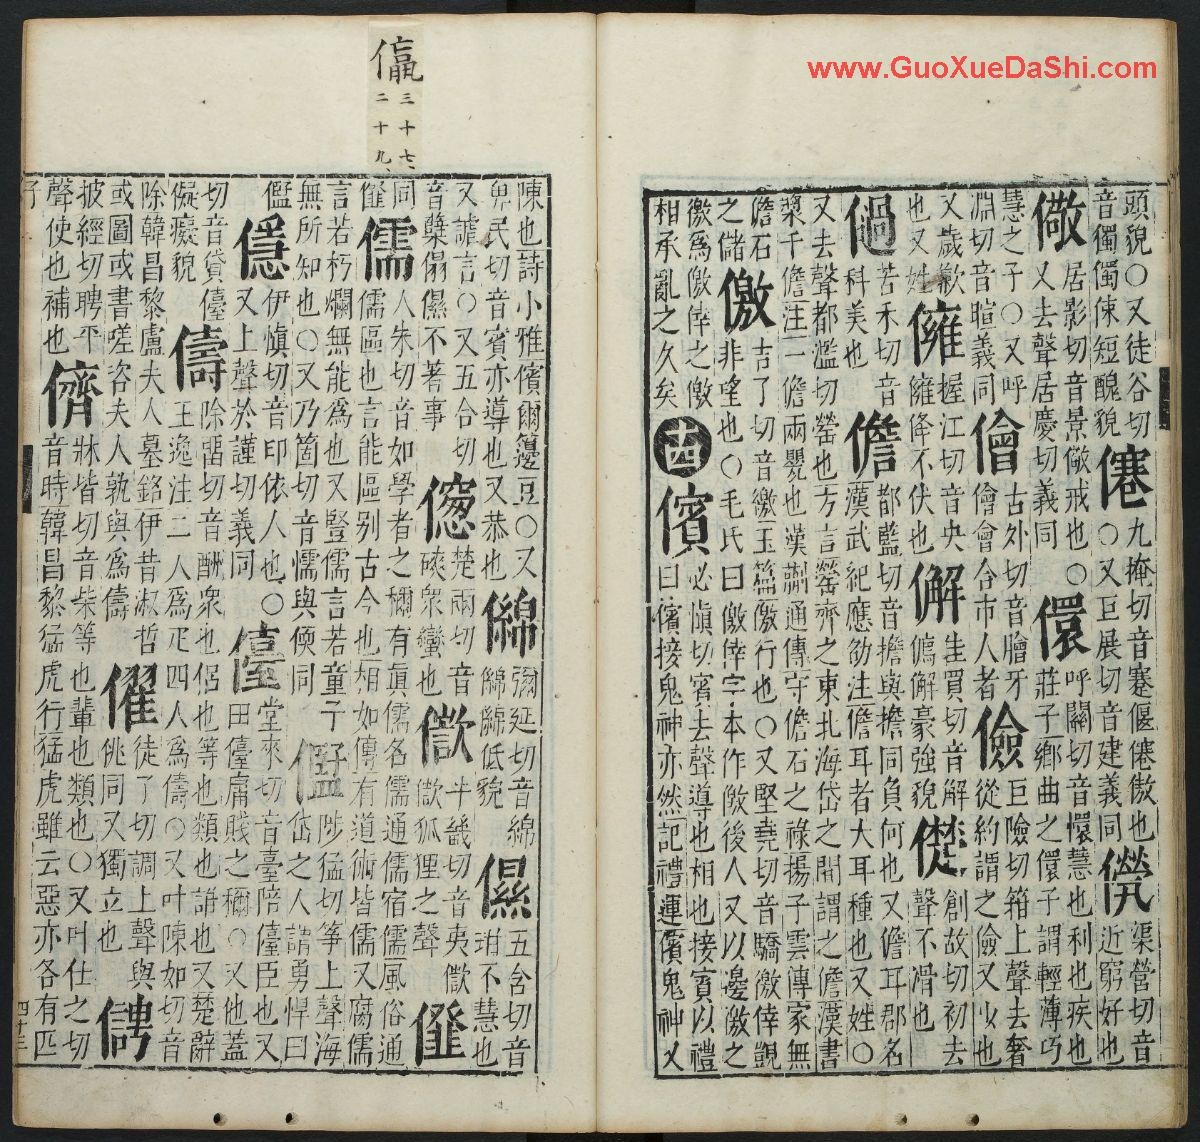 www.GuoXueDaShi.com
頭貌〇又徒谷切
音獨獨倲短醜貌
九掩切音蹇偃傲也
〇又巨展切音建義同
儝
渠營切音
近窮好也
儆
居影切音景儆戒也〇
又去聲居慶切義同
儇
呼關切音懁慧也利也疾也
莊子鄉曲之儇子謂輕薄巧
慧之子〇又呼
淵切音暄義同
儈
古外切音膾牙
儈會合市人者
儉
巨險切箝上聲去奢
從約謂之儉又少也
又歲歉
也又姓
㒕
握江切音央
㒕佭不伏也
生買切音解
解豪強貌
儊
創故切初去
聲不滑也
苦禾切音
科美也
儋
都藍切音擔與擔同負何也又儋耳郡名
漢武紀應劭注儋耳者大耳種也又姓〇
又去聲都濫切罃也方言罃齊之東北海岱之間謂之儋漢書
槳千儋注一儋兩甖也漢蒯通傳守儋石之祿揚子雲傳家無
儋石
之儲
儌
吉了切音繳玉篇儌行也〇又堅堯切音驕儌倖覬
非望也〇毛氏曰儌倖字本作儌後人又以邊徼之
徼爲儌倖之儌
相承亂之久矣
十四
儐
必愼切賓去聲導也相也接賓以禮
曰儐接鬼神亦然記禮運儐鬼神又
三十七
二十九
陳也詩小雅儐爾籩豆〇又
民切音賓亦導也又恭也
彌延切音綿
低貌
儑
五含切音
不慧也
又謔言〇又五合切
音櫱傝儑不著事
楚兩切音
磢衆蠻也
半畿切音夷
狐狸之聲
同
儒
人朱切音如學者之稱有眞儒名儒通儒宿儒風俗通
儒區也言能區别古今也相如傳有道術皆儒又腐儒
言若朽爛無能爲也又豎儒言若童子
無所知也〇又乃箇切音懦與偄同
陟猛切筝上聲海
岱之人謂勇悍曰
伊愼切音印依人也〇
又上聲於謹切義同
儓
堂來切音臺陪儓臣也又
田儓庸賤之稱〇又他蓋
切音貸儓
儗癡貌
儔
除畱切音酬衆也侶也等也類也誰也又楚辭
王逸注二人爲疋四人爲儔〇又叶陳如切音
除韓昌黎盧夫人墓銘伊昔淑哲
或圖或書嗟咨夫人孰與爲儔
徒了切調上聲與
佻同又獨立也
披經切聘平
聲使也補也
儕
牀皆切音柴等也輩也類也〇又叶仕之切
音時韓昌黎猛虎行猛虎雖云惡亦各有匹
四十三